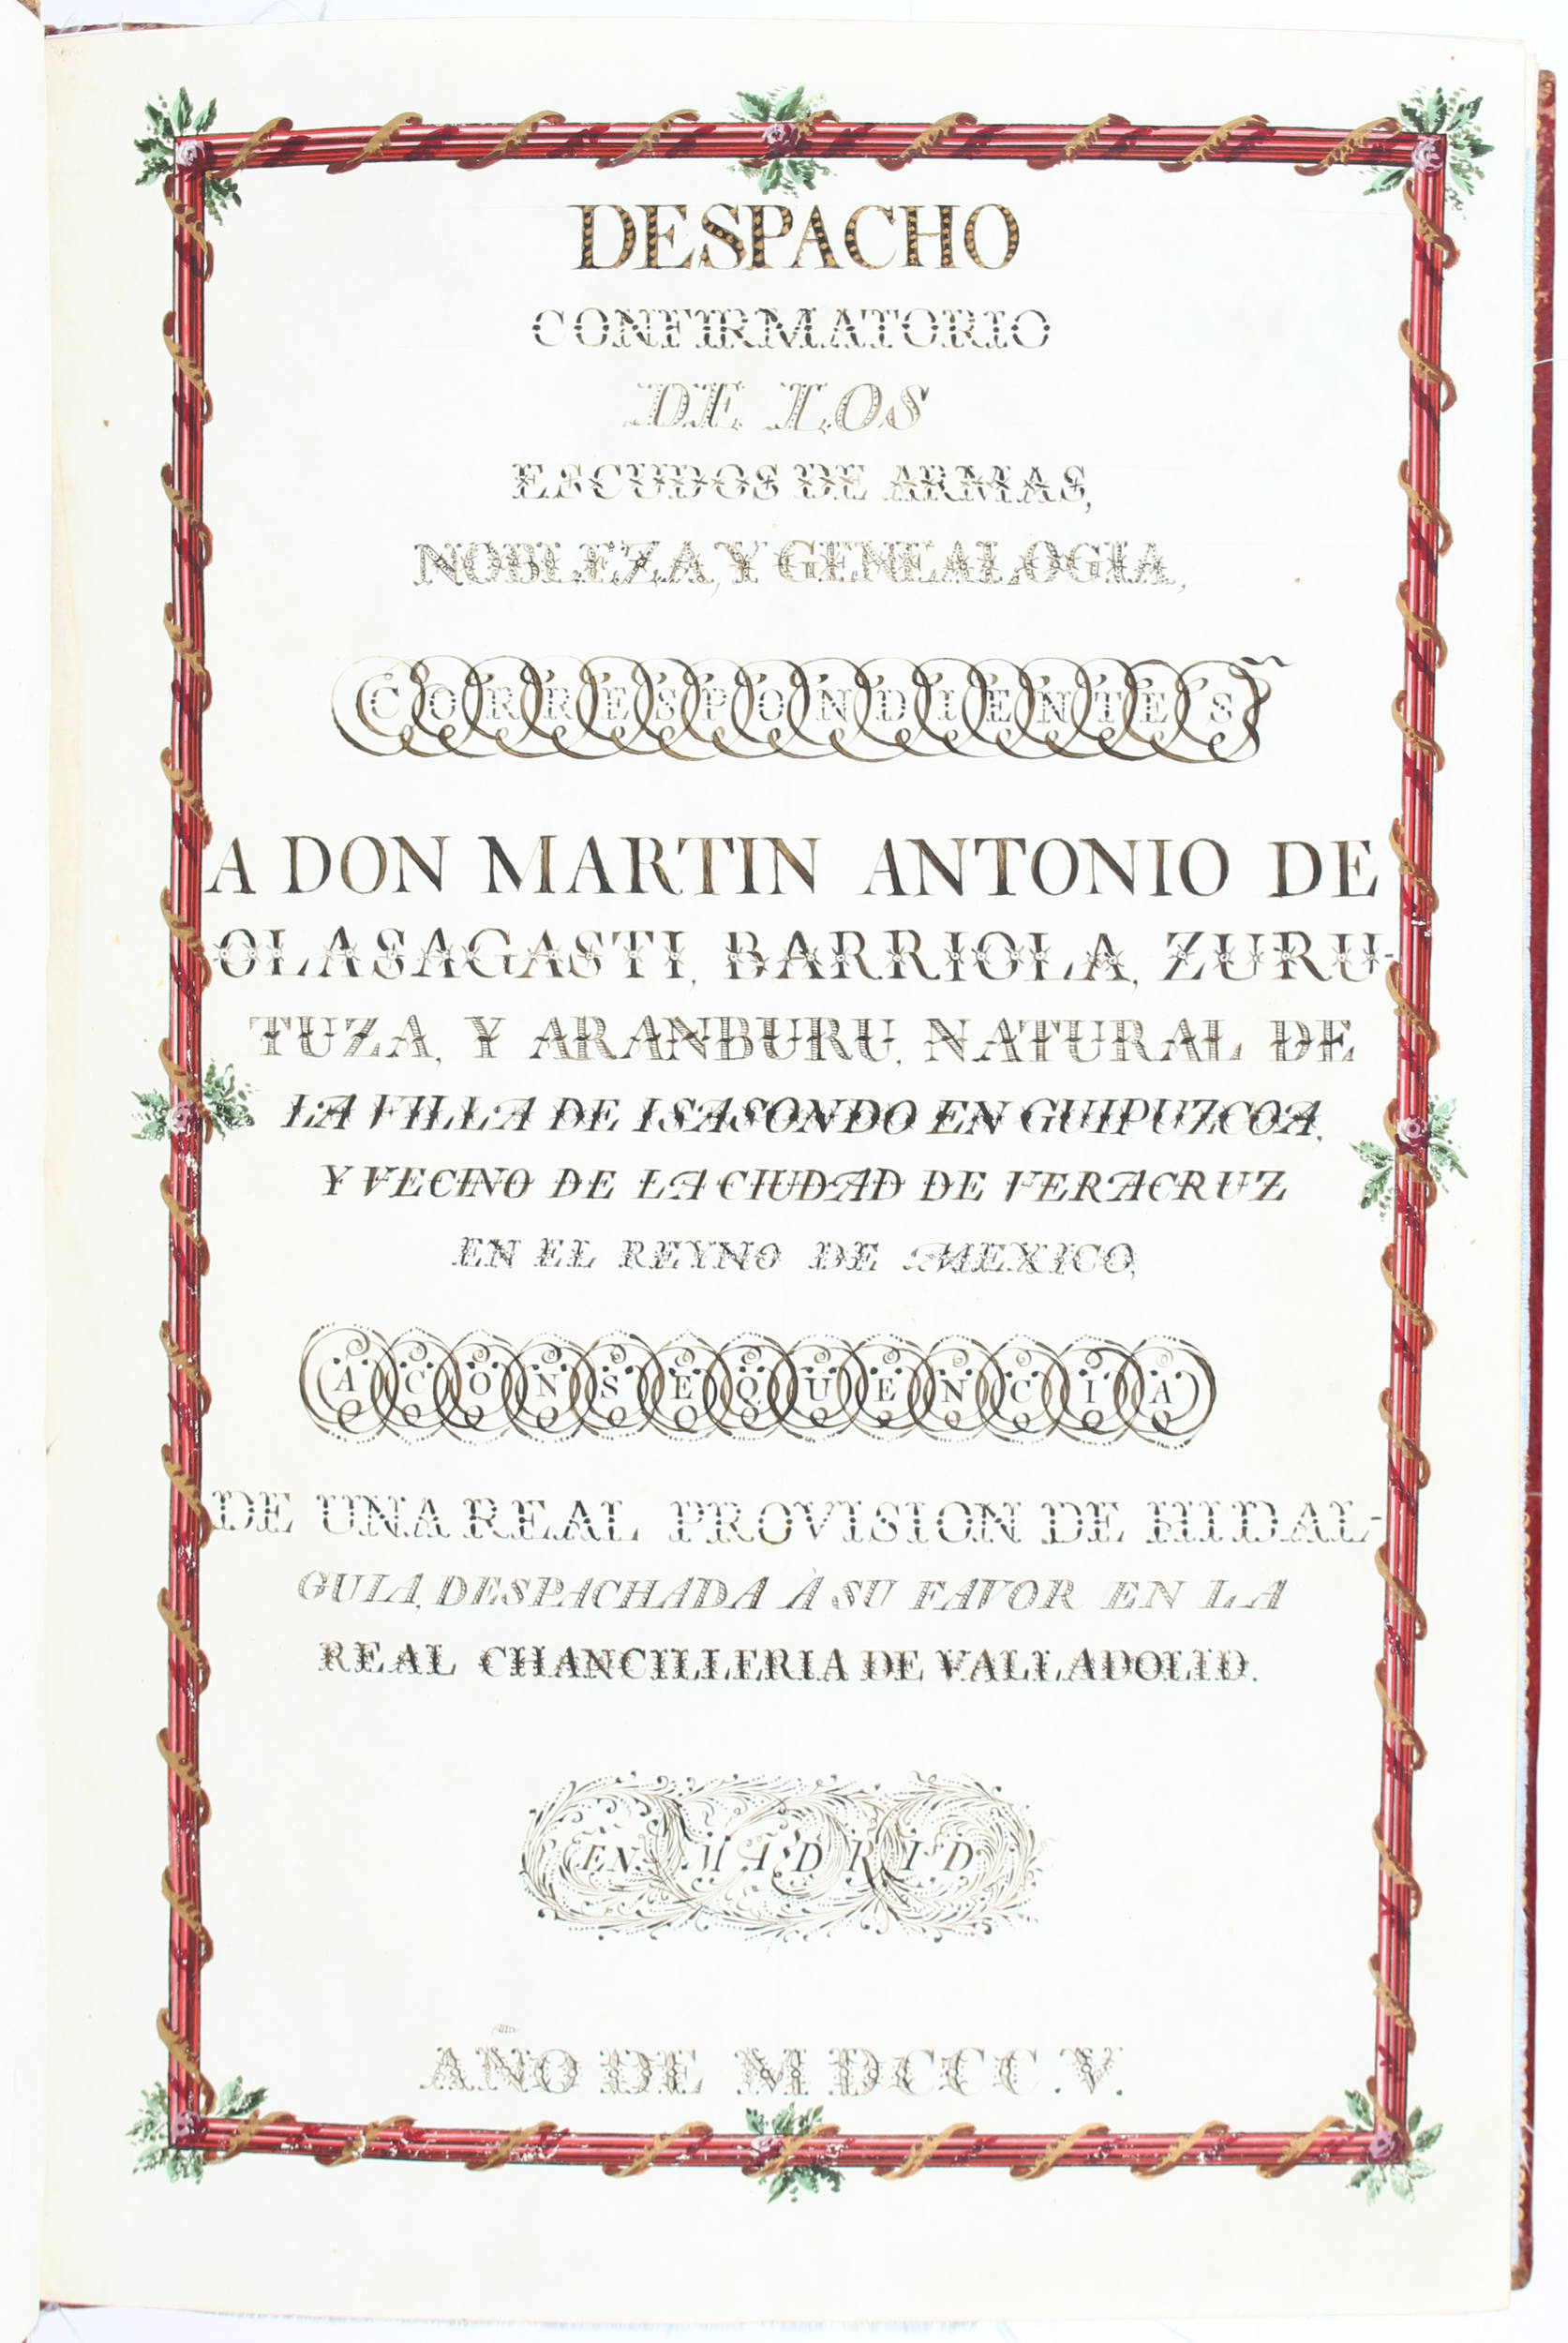 DESPACHO
CONFIRMATORIO
DE LOS
ESCUDOS DE ARMAS,
NOBLEZA, Y GENEALOGIA,
CORRESPONDIENTES
A DON MARTIN ANTONIO DE
OLASAGASTI, BARRIOLA, ZURU-
TUZA, Y ARANBURU, NATURAL DE
LA VILLA DE ISASONDO EN GUIPUZCOA,
Y VECINO DE LA CIUDAD DE VERACRUZ
EN EL REYNO DE MEXICO,
A CONSEQUENCIA
DE UNA REAL PROVISION DE HIDAL-
GUIA, DESPACHADA À SU FAVOR EN LA
REAL CHANCILLERIA DE VALLADOLID.
EN MADRID
AÑO DE MDCCC.V.